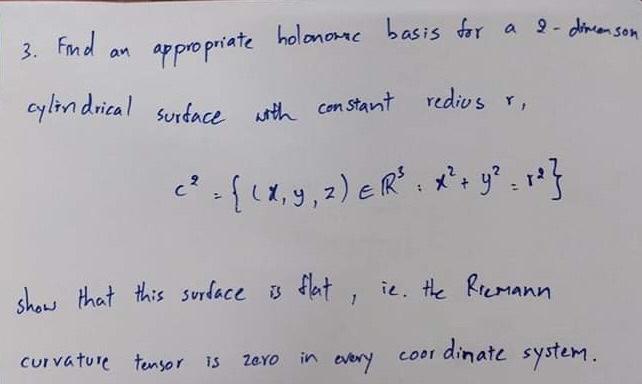 3. Find an appropriate holonomic basis for a 2-dimenson
cylindrical surface with constant redius r,
C² = {(x, y, z) ∈ ℝ³ : x² + y² = r²}
show that this surface is flat, ie. the Riemann
curvature tensor is zero in every coordinate system.